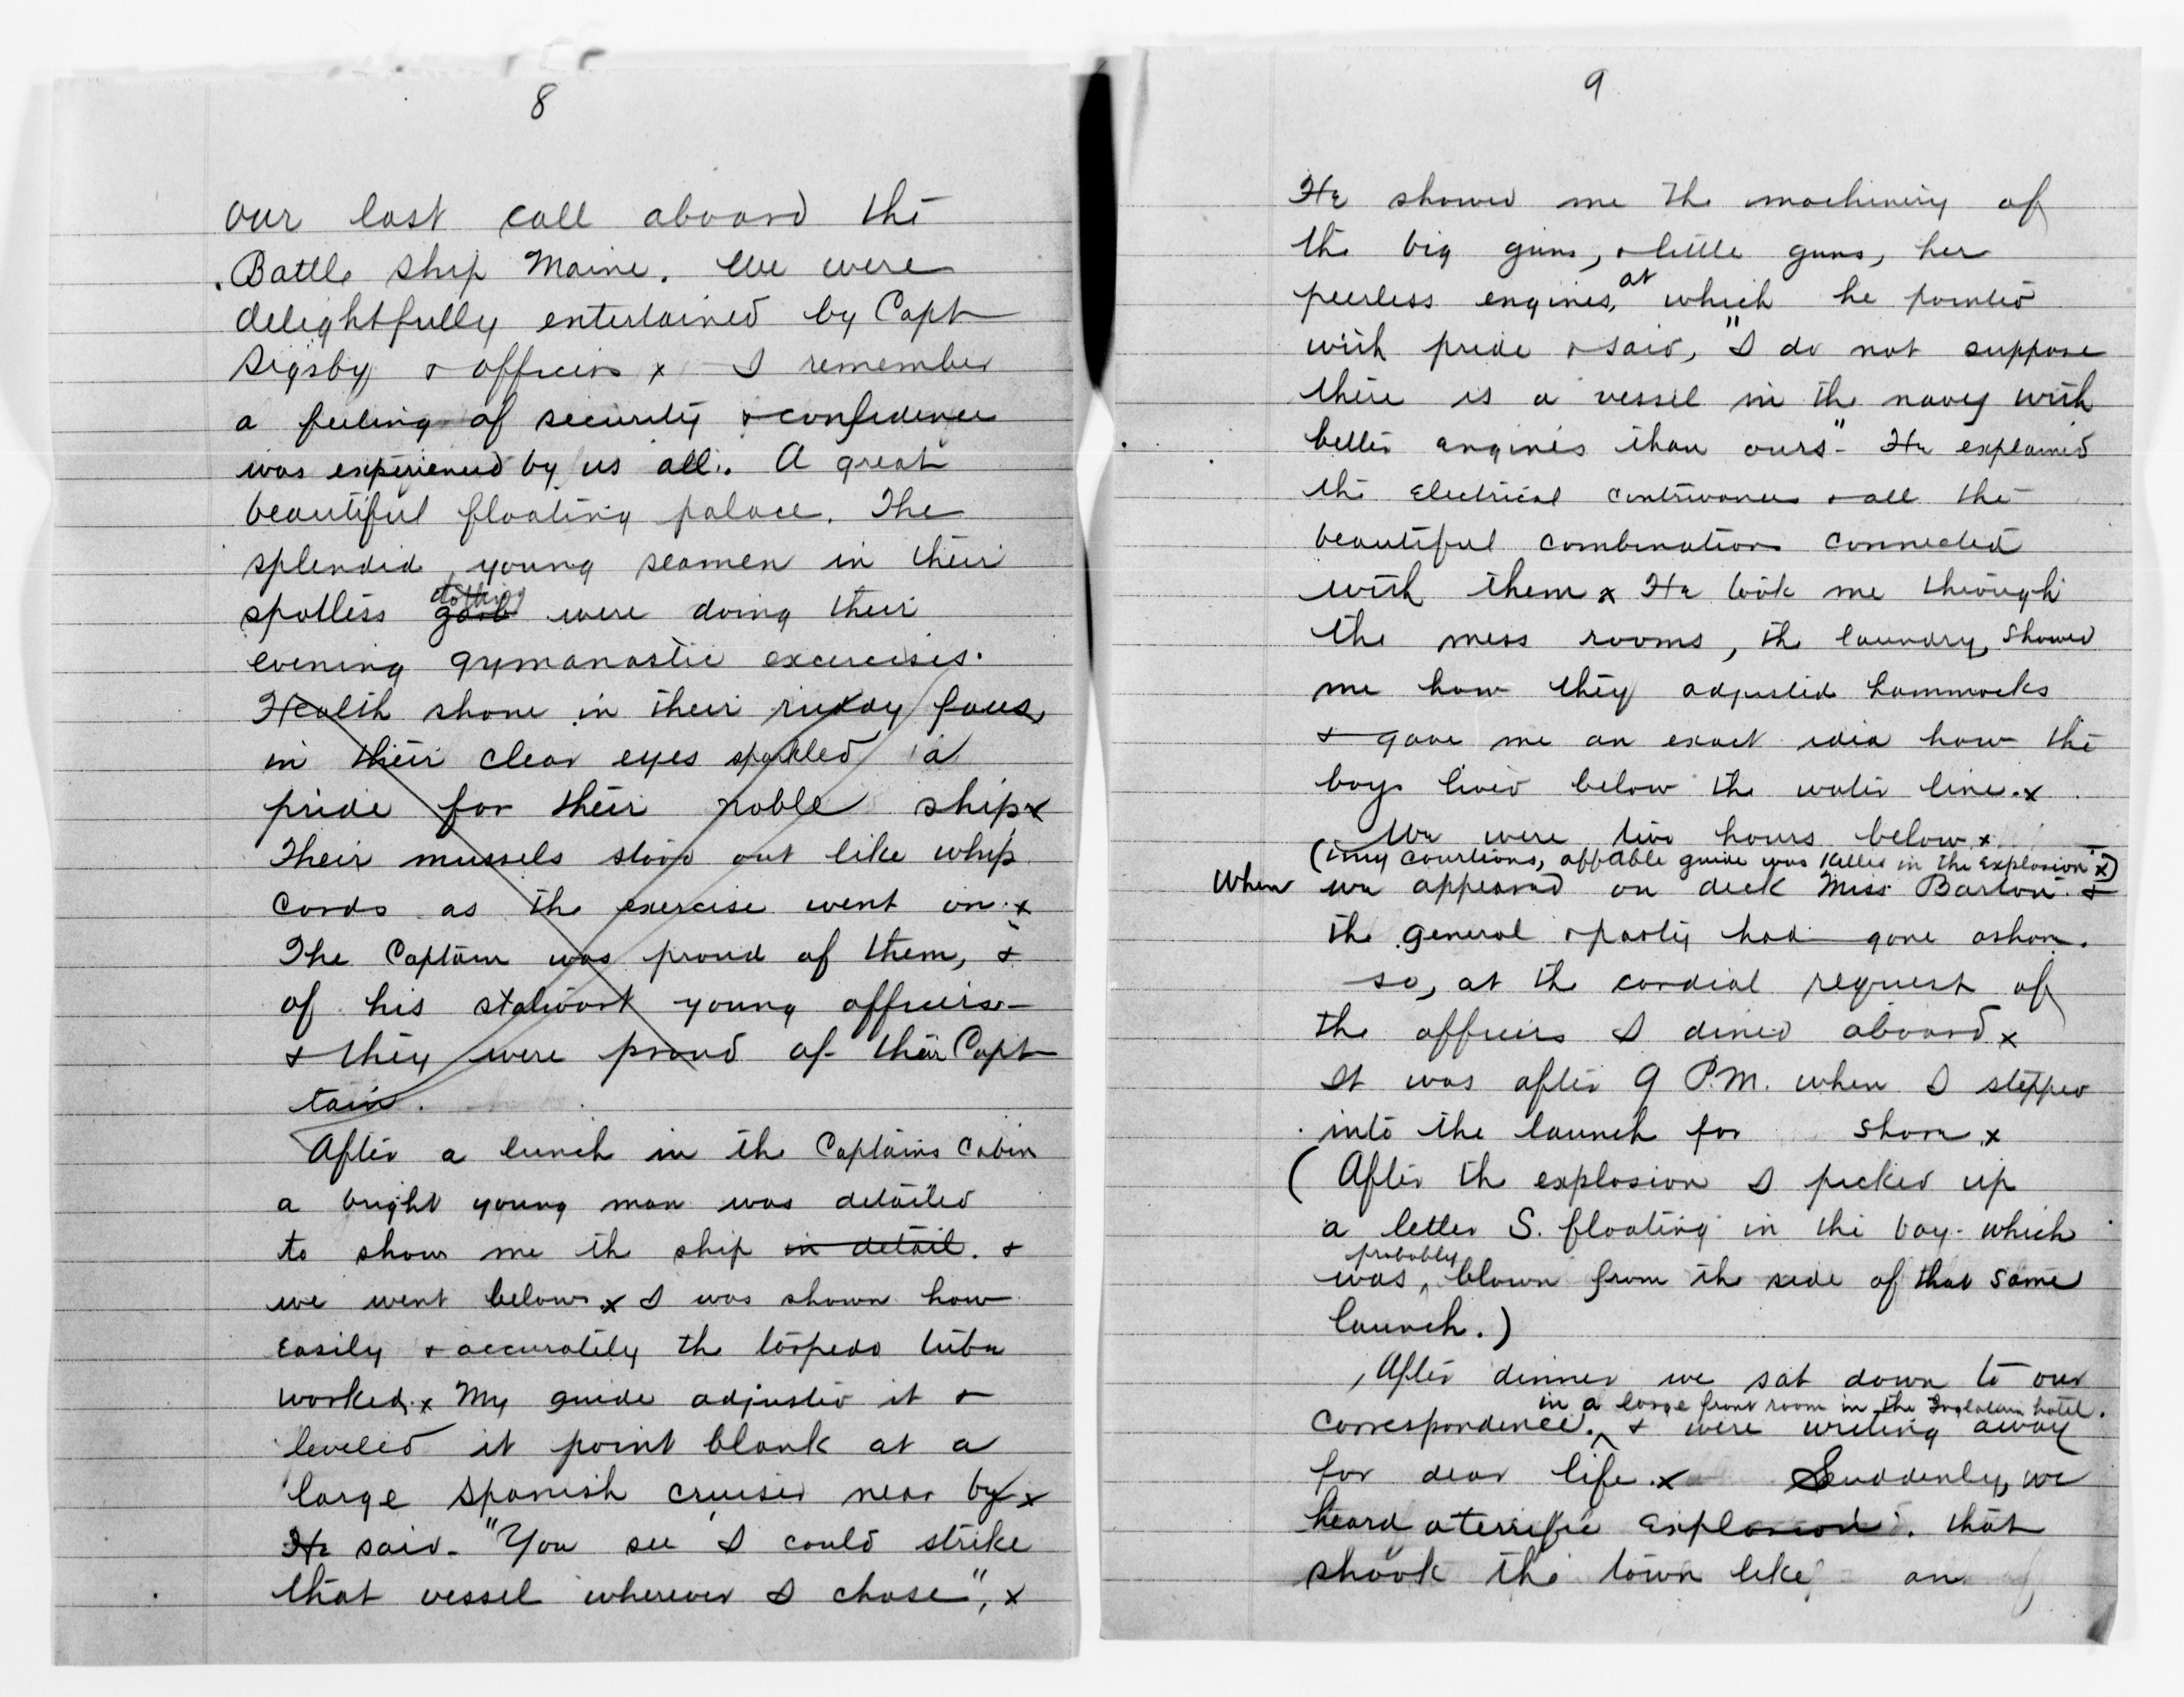 8
our last call aboard the
Battle Ship Maine. We were
delightfully entertained by Capt
Sigsby & officers x I remember
a feeling of security & confidence
was experienced by us all. A great
beautiful floating palace. The
splendid young seamen in their
clothing
spotless garb were doing their
evening gymanastic excercises.
Health shone in their rudday faces,
in their clear eyes sparkled a
pride for their noble ship x
Their mussels stood out like whip
cords as the exercise went on. x
The Captain was proud of them, &
of his stalwart young officers -
& they were proud of their Capt
tain.
After a lunch in the Captains Cabin
a bright young man was detailed
to show me the ship in detail. &
we went below x I was shown how
Easily & accurately the torpedo tube
worked. x My guide adjusted it &
leveled it point blank at a
large Spanish cruiser near by x
He said - "You see I could strike
that vessel wherever I chose", x
9
He showed me the machinery of
the big guns, & little guns, her
at
peerless engines, which he pointed
with pride & said, "I do not suppose
there is a vessel in the navy with
better engines than ours" - He explained
the Electrical contrivances & all the
beautiful combinations connected
with them x He took me through
the mess rooms, the laundry, showed
me how they adjusted hammocks
& gave me an exact idea how the
boys lived below the water line. x
We were two hours below x
(my courtious, affable guide was killed in the Explosion x)
When we appeared on deck Miss Barton &
the general & party had gone ashore.
so, at the cordial request of
the officers I dined aboard x
It was after 9 P.M. when I stepped
into the launch for shore x
( After the explosion I picked up
a letter S. floating in the bay - which
probably
was, blown from the side of that same
launch.)
After dinner we sat down to our
in a large front room in the Inglaterra hotel.
correspondence. & were writing away
for dear life. x Suddenly, we
heard a terrific explosion. that
shook the town like an